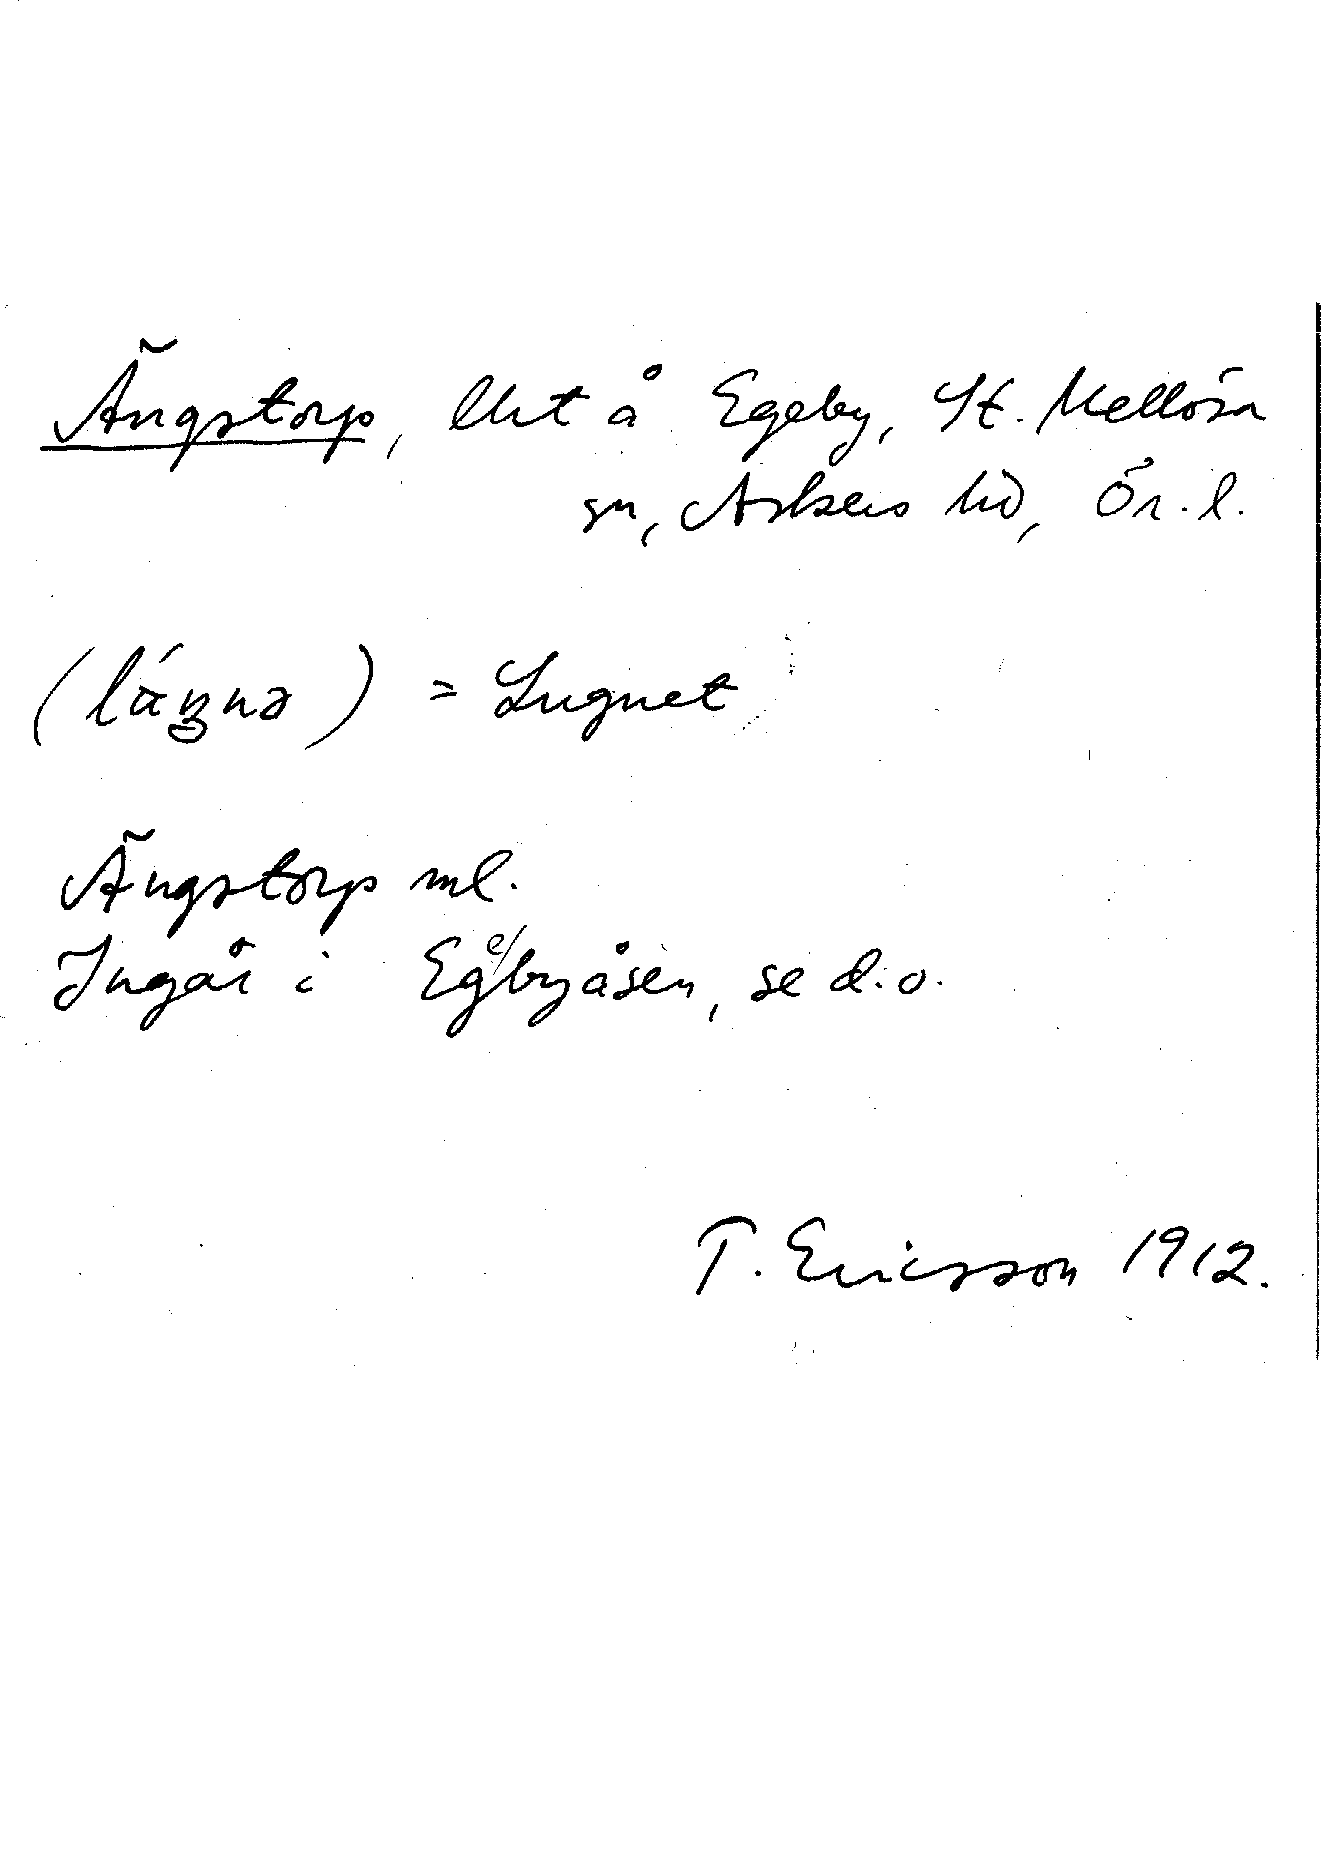 Ängstorp, lht å Egeby, St. Mellösa
sn, Askers hd, Ör. l.
= Lugnet
Ängstorp ml.
Ingår i Egebyåsen, se d.o.
T. Ericsson 1912.